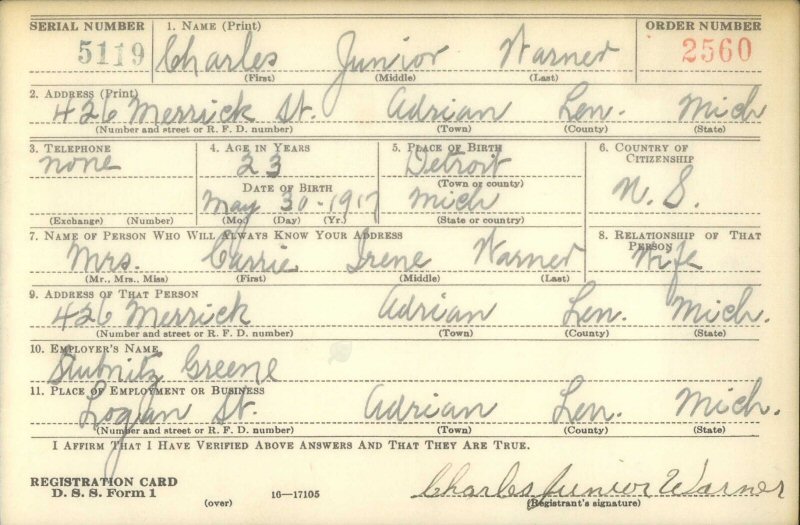 SERIAL NUMBER 1. NAME (Print) ORDER NUMBER
5119 Charles Junior Warner 2560
(First) (Middle) (Last)
2. ADDRESS (Print)
426 Merrick St. Adrian Len. Mich
(Number and street or R. F. D. number) (Town) (County) (State)
3. TELEPHONE 4. AGE IN YEARS 5. PLACE OF BIRTH 6. COUNTRY OF CITIZENSHIP
none 23 Detroit
(Town or county)
DATE OF BIRTH U. S.
May 30-1917 Mich
(Exchange) (Number) (Mo.) (Day) (Yr.) (State or country)
7. NAME OF PERSON WHO WILL ALWAYS KNOW YOUR ADDRESS 8. RELATIONSHIP OF THAT PERSON
Mrs. Carrie Irene Warner Wife
(Mr., Mrs., Miss) (First) (Middle) (Last)
9. ADDRESS OF THAT PERSON
426 Merrick Adrian Len. Mich.
(Number and street or R. F. D. number) (Town) (County) (State)
10. EMPLOYER'S NAME
Stubnitz Greene
11. PLACE OF EMPLOYMENT OR BUSINESS
Logan St. Adrian Len. Mich.
(Number and street or R. F. D. number) (Town) (County) (State)
I AFFIRM THAT I HAVE VERIFIED ABOVE ANSWERS AND THAT THEY ARE TRUE.
REGISTRATION CARD
D. S. S. Form 1 (over) 16—17105 Charles Junior Warner
(Registrant's signature)